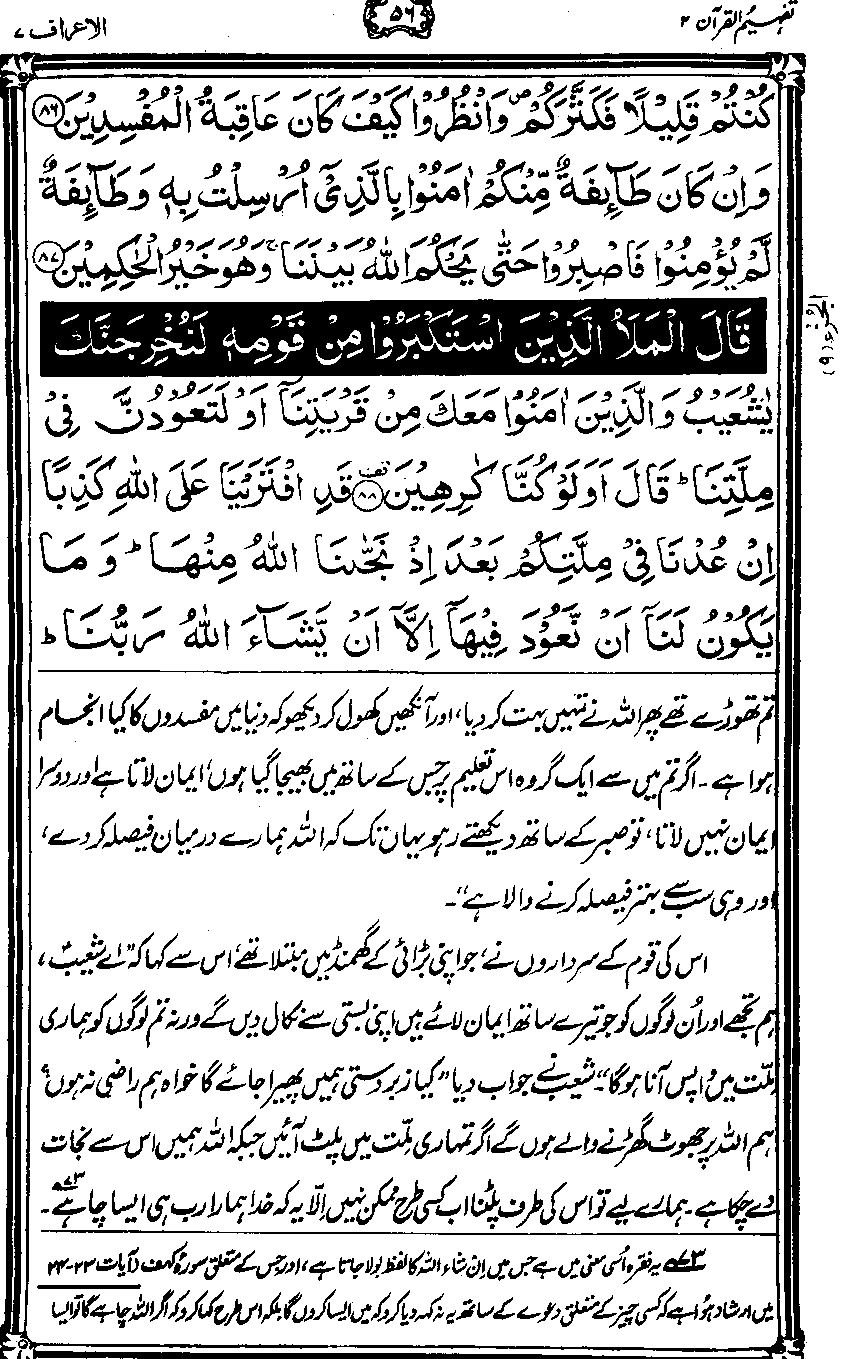 تفہیم القرآن ۲
۵۶
الاعراف ۷
كُنْتُمْ قَلِيْلًا فَكَثَّرَكُمْ ۪ وَانْظُرُوْا كَيْفَ كَانَ عَاقِبَةُ الْمُفْسِدِيْنَ ﴿۸۶﴾
وَاِنْ كَانَ طَآئِفَةٌ مِّنْكُمْ اٰمَنُوْا بِالَّذِيْۤ اُرْسِلْتُ بِهٖ وَطَآئِفَةٌ
لَّمْ يُؤْمِنُوْا فَاصْبِرُوْا حَتّٰى يَحْكُمَ اللّٰهُ بَيْنَنَا ۚ وَهُوَ خَيْرُ الْحٰكِمِيْنَ ﴿۸۷﴾
قَالَ الْمَلَاُ الَّذِيْنَ اسْتَكْبَرُوْا مِنْ قَوْمِهٖ لَنُخْرِجَنَّكَ
الجزء (۹)
يٰشُعَيْبُ وَالَّذِيْنَ اٰمَنُوْا مَعَكَ مِنْ قَرْيَتِنَاۤ اَوْ لَتَعُوْدُنَّ فِيْ
مِلَّتِنَا ؕ قَالَ اَوَلَوْ كُنَّا كٰرِهِيْنَ ﴿۸۸﴾ قَدِ افْتَرَيْنَا عَلَى اللّٰهِ كَذِبًا
اِنْ عُدْنَا فِيْ مِلَّتِكُمْ بَعْدَ اِذْ نَجّٰىنَا اللّٰهُ مِنْهَا ؕ وَمَا
يَكُوْنُ لَنَاۤ اَنْ نَّعُوْدَ فِيْهَاۤ اِلَّاۤ اَنْ يَّشَآءَ اللّٰهُ رَبُّنَا ؕ
تم تھوڑے تھے پھر اللہ نے تمہیں بہت کر دیا، اور آنکھیں کھول کر دیکھو کہ دنیا میں مفسدوں کا کیا انجام
ہوا ہے۔ اگر تم میں سے ایک گروہ اس تعلیم پر جس کے ساتھ میں بھیجا گیا ہوں، ایمان لاتا ہے اور دوسرا
ایمان نہیں لاتا، تو صبر کے ساتھ دیکھتے رہو یہاں تک کہ اللہ ہمارے درمیان فیصلہ کر دے،
اور وہی سب سے بہتر فیصلہ کرنے والا ہے“۔
اس کی قوم کے سرداروں نے، جو اپنی بڑائی کے گھمنڈ میں مبتلا تھے، اس سے کہا کہ ”اے شعیبؑ،
ہم تجھے اور اُن لوگوں کو جو تیرے ساتھ ایمان لائے ہیں اپنی بستی سے نکال دیں گے ورنہ تم لوگوں کو ہماری
ملّت میں واپس آنا ہوگا“۔ شعیبؑ نے جواب دیا ”کیا زبردستی ہمیں پھیرا جائے گا خواہ ہم راضی نہ ہوں؟
ہم اللہ پر جھوٹ گھڑنے والے ہوں گے اگر تمہاری ملّت میں پلٹ آئیں جبکہ اللہ ہمیں اس سے نجات
دے چکا ہے۔ ہمارے لیے تو اس کی طرف پلٹنا اب کسی طرح ممکن نہیں اِلّا یہ کہ خدا ہمارا رب ہی ایسا چاہے۷۳۔
۷۳ یہ فقرہ اُسی معنی میں ہے جس میں اِن شاء اللہ کا لفظ بولا جاتا ہے، اور جس کے متعلق سورۂ کہف (آیات ۲۳-۲۴)
میں ارشاد ہوا ہے کہ کسی چیز کے متعلق دعوے کے ساتھ یہ نہ کہہ دیا کرو کہ میں ایسا کروں گا بلکہ اس طرح کہا کرو کہ اگر اللہ چاہے گا تو ایسا